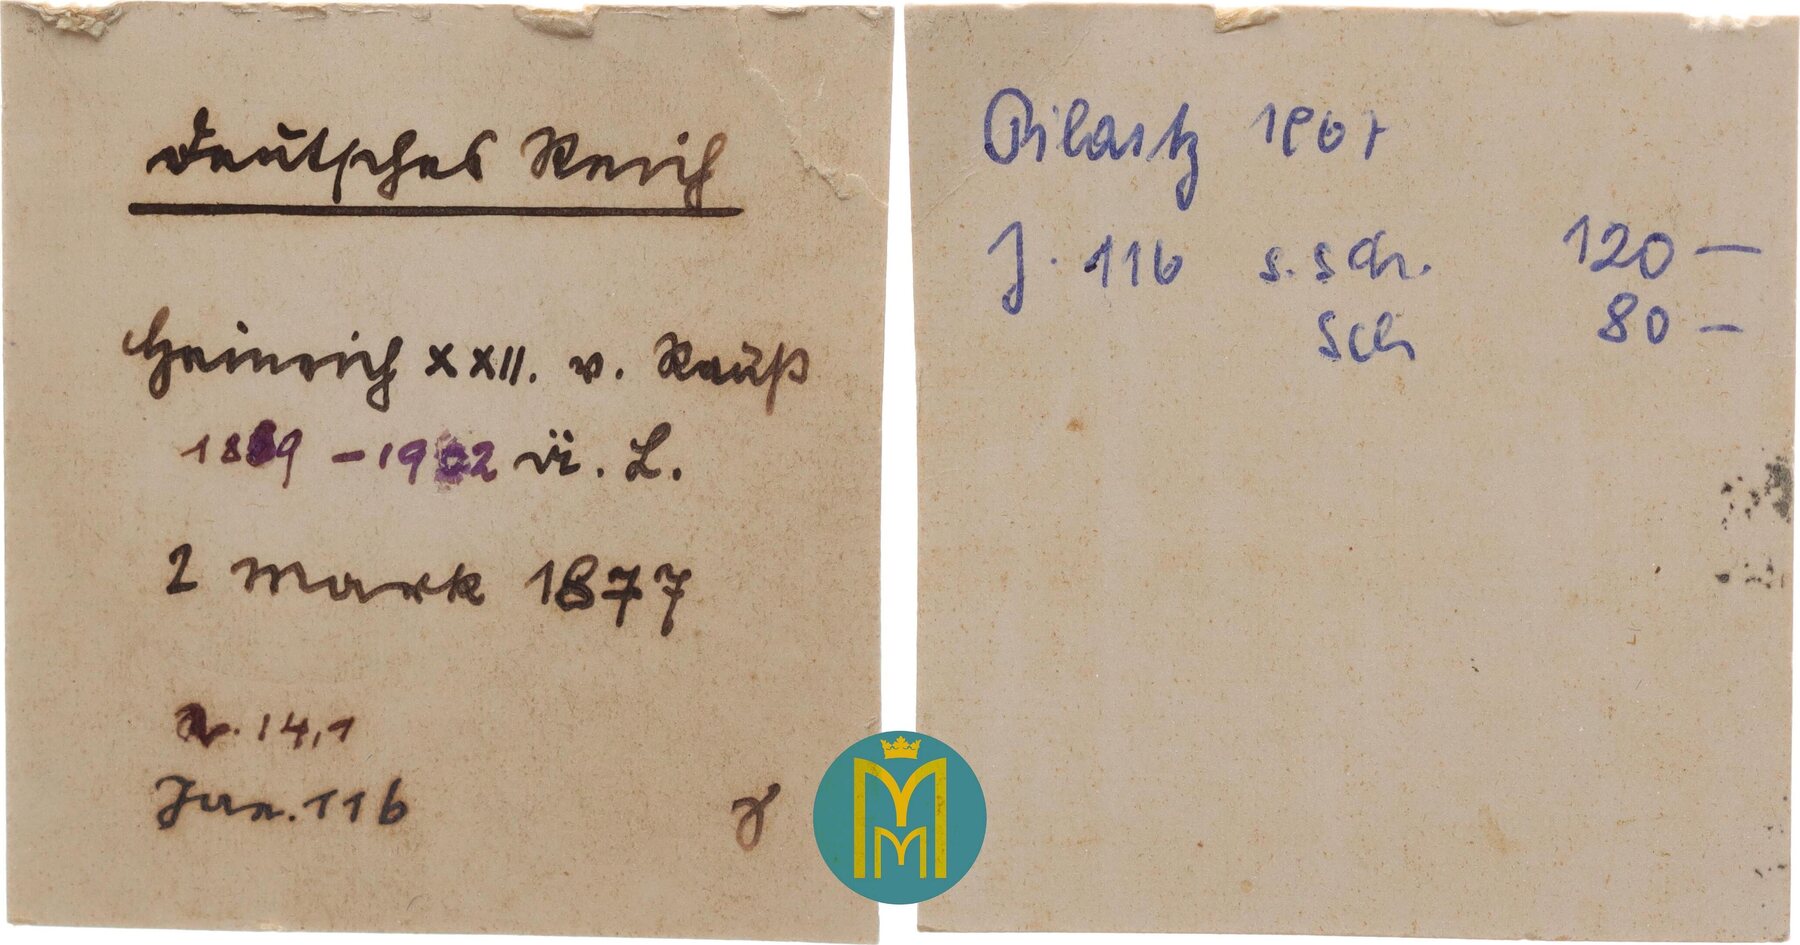 Deutsches Reich
Heinrich XXII. v. Reuß
1859 - 1902 ä. L.
2 Mark 1877
14,1
Jae. 116
J. 116 s. sch. 120 —
Sch 80 —
MM